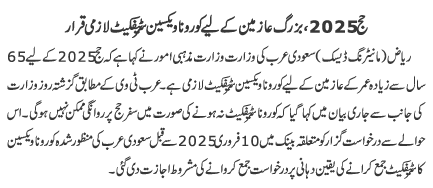 حج 2025، بزرگ عازمین کے لیے کورونا ویکسین سرٹیفکیٹ لازمی قرار
ریاض (مانیٹرنگ ڈیسک) سعودی عرب کی وزارت وزارت مذہبی امور نے کہا ہے کہ حج 2025 کے لیے 65
سال سے زیادہ عمر کے عازمین کے لیے کورونا ویکسین سرٹیفکیٹ لازمی ہے۔ عرب ٹی وی کے مطابق گزشتہ روز وزارت
کی جانب سے جاری بیان میں کہا گیا کہ کورونا سرٹیفکیٹ نہ ہونے کی صورت میں سفر حج پر روانگی ممکن نہیں ہوگی۔ اس
حوالے سے درخواست گزار کو متعلقہ بینک میں 10 فروری 2025 سے قبل سعودی عرب کی منظور شدہ کورونا ویکسین
کا سرٹیفکیٹ جمع کرانے کی یقین دہانی پر درخواست جمع کروانے کی مشروط اجازت دی گئی۔